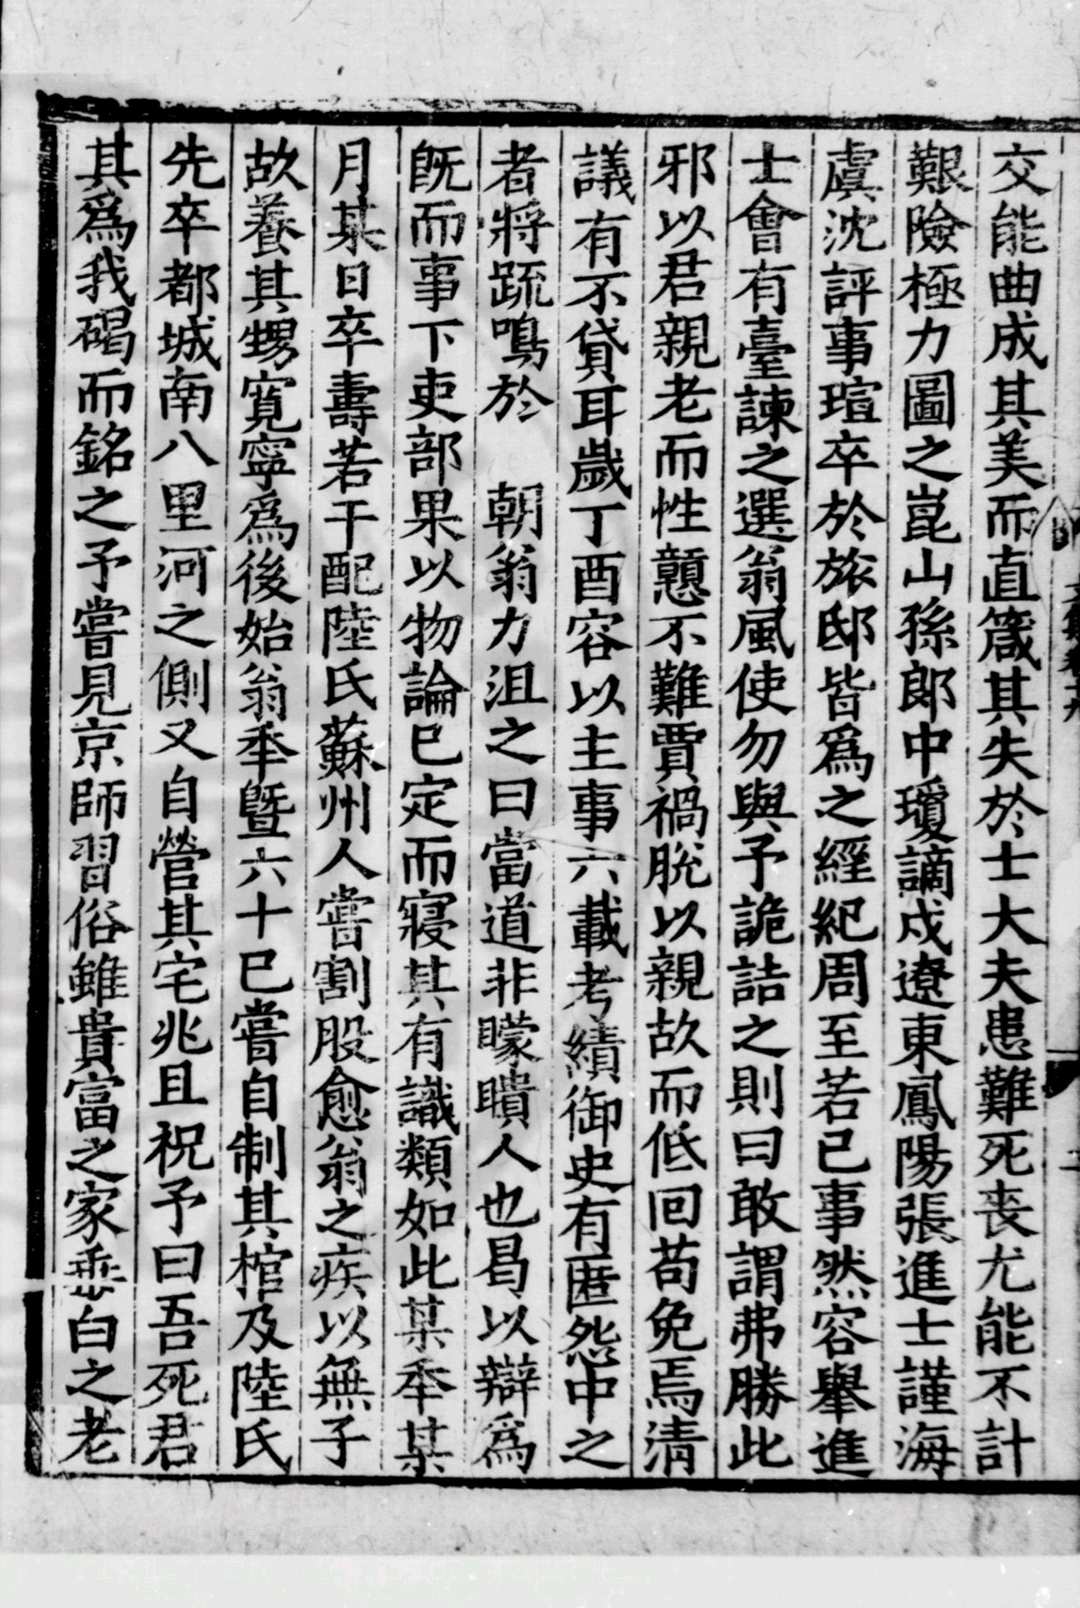 交能曲成其美而直箴其失於士大夫患難死喪尤能不計
艱險極力圖之崑山孫郎中瓊謫戍遼東鳳陽張進士謹海
虞沈評事瑄卒於旅邸皆為之經紀周至若已事然容舉進
士會有臺諫之選翁風使勿與予詭詰之則曰敢謂弗勝此
邪以君親老而性戇不難賈禍脫以親故而低回苟免焉清
議有不貸耳歲丁酉容以主事六載考績御史有匿怨中之
者將䟽鳴於　朝翁力沮之曰當道非矇瞶人也曷以辯為
旣而事下吏部果以物論已定而寢其有識類如此某秊某
月某日卒壽若干配陸氏蘇州人嘗割股愈翁之疾以無子
故養其甥寬寧為後始翁秊暨六十已嘗自制其棺及陸氏
先卒都城南八里河之側又自營其宅兆且祝予曰吾死君
其為我碣而銘之予嘗見京師習俗雖貴富之家垂白之老